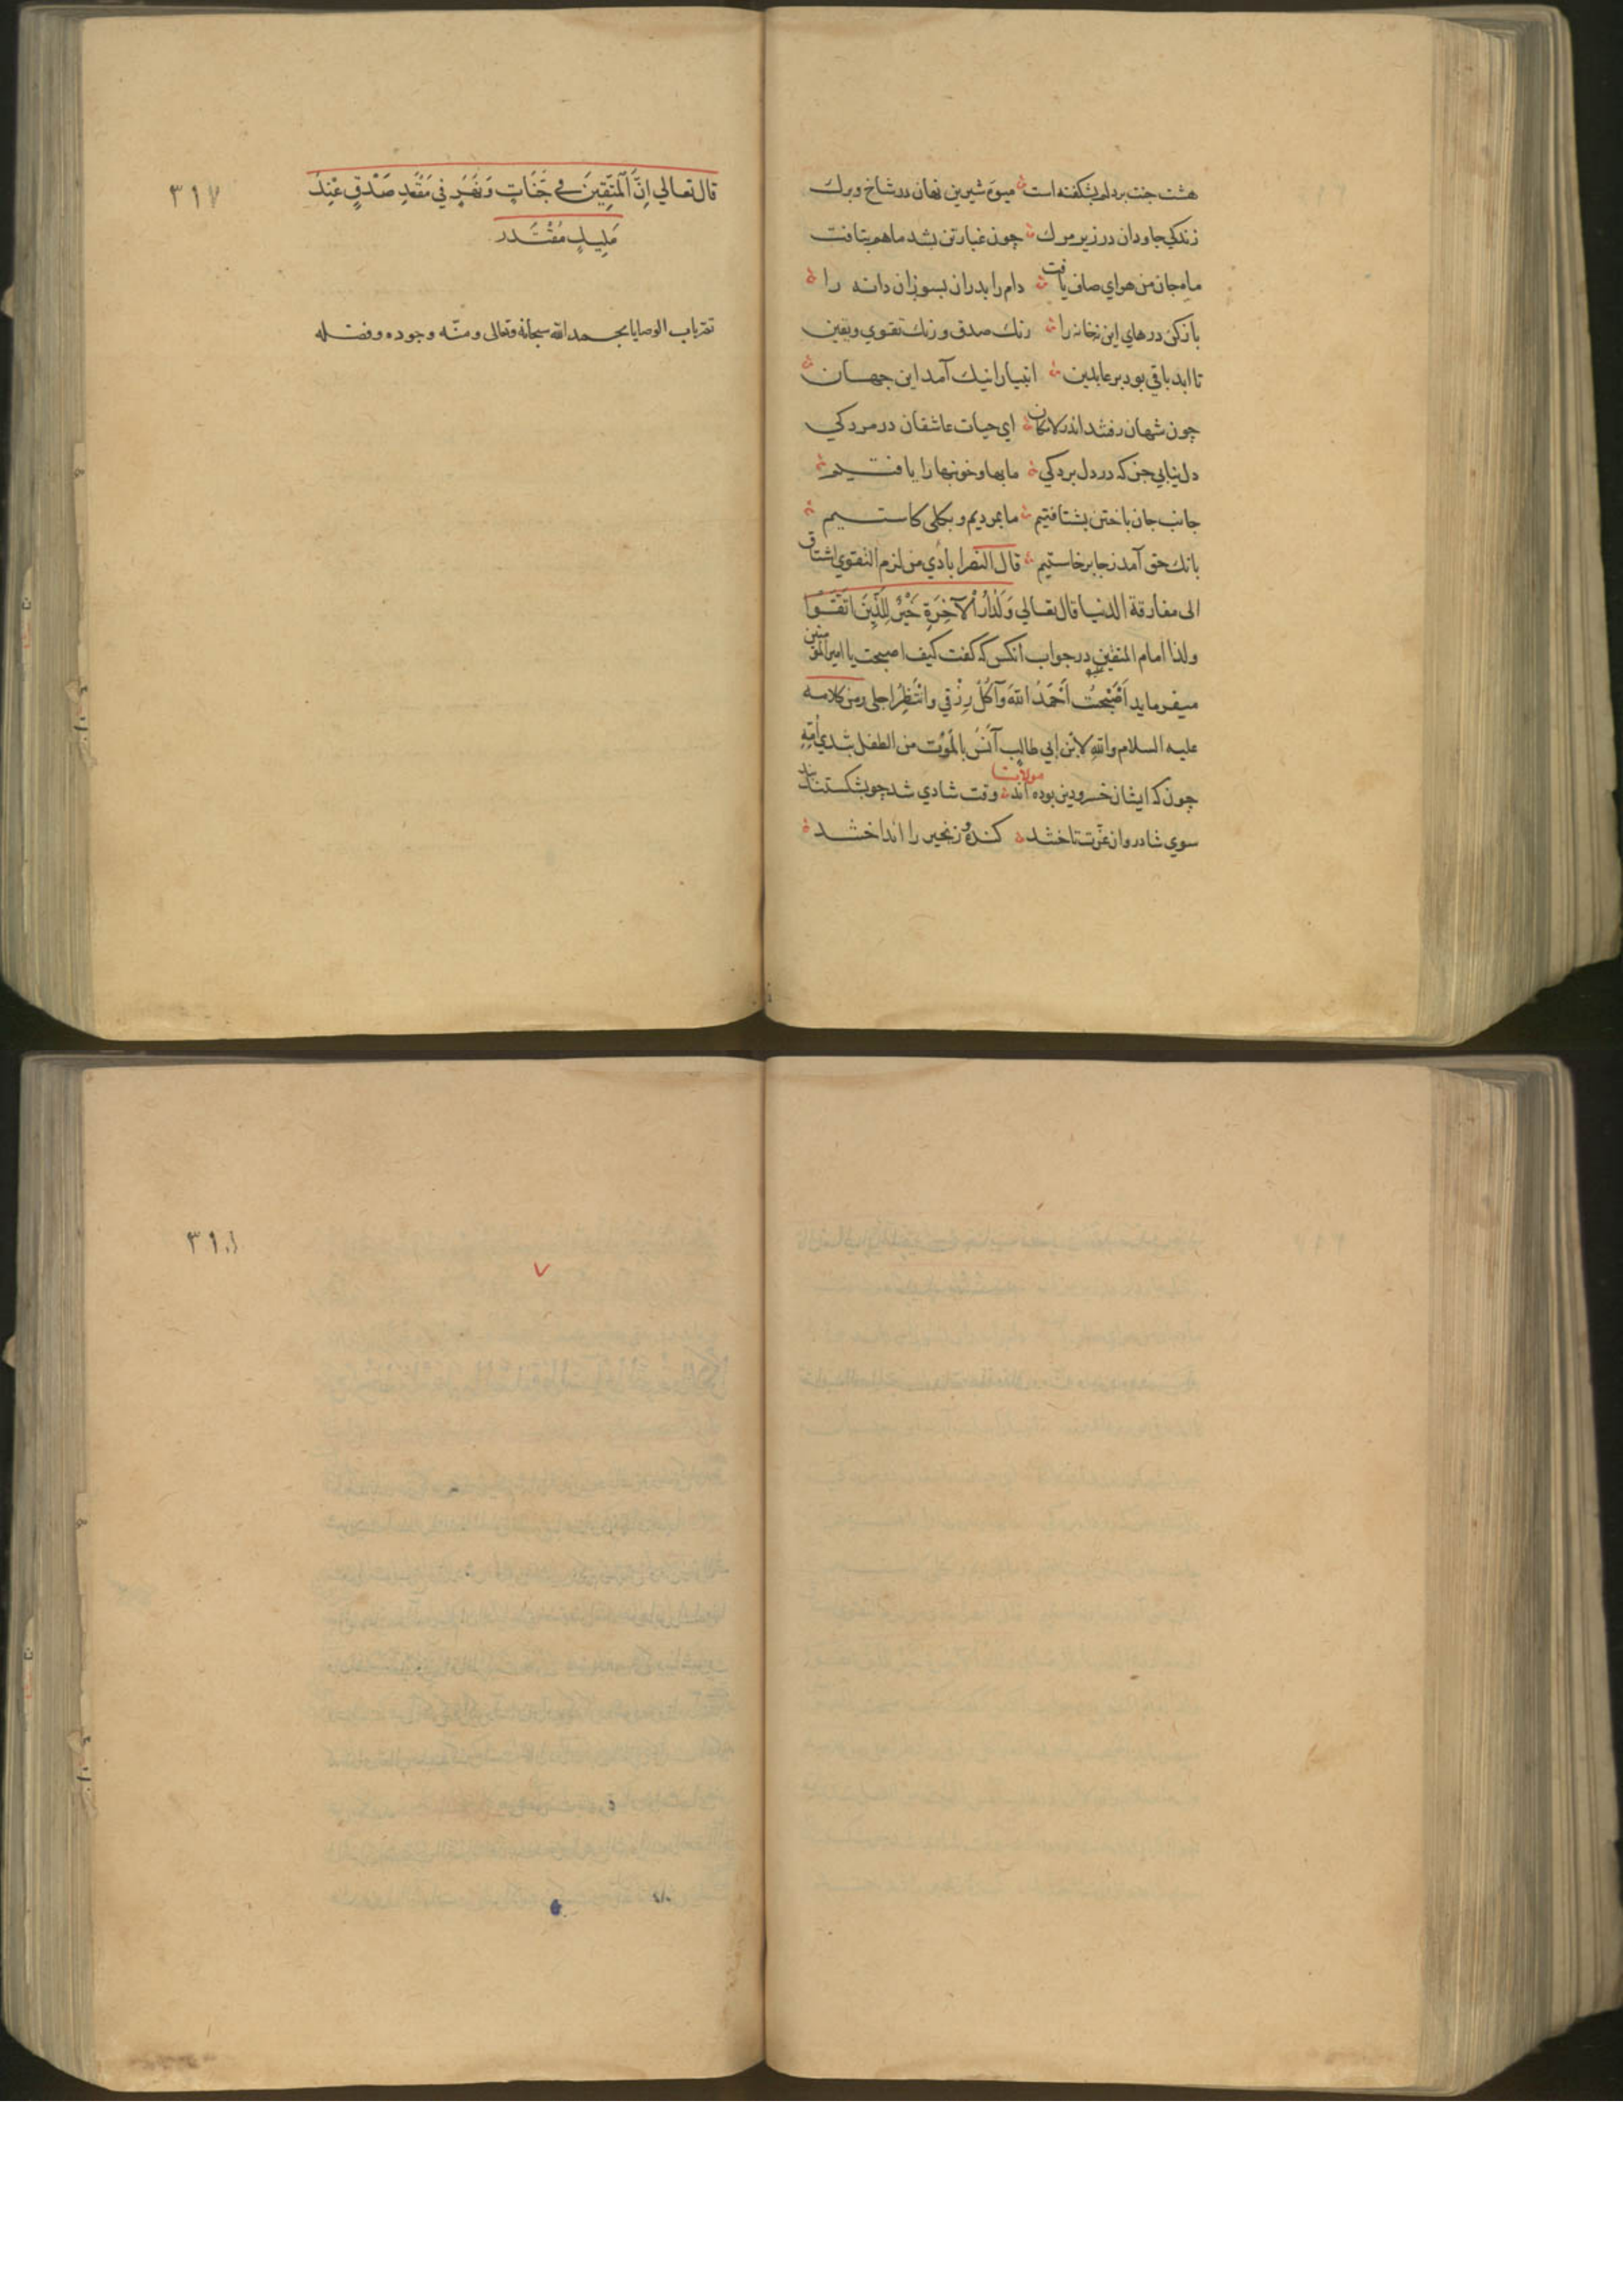 هشت جنت بردلم بشکفته است ميوهٔ شيرين نهان در شاخ و برك
زندکي جاودان در زير مرك چون غبار تن بشد ماهم بتافت
ماه جان من هواي صاف يافت دام را بدران بسوزان دانه را
باز کن درهاي اين نه خانه را رنك صدق و رنك تقوي ويقين
تا ابد باقي بود بر عابدين انبيارا نيك آمد اين جهان
چون شهان رفتند اندر لامكان اي حيات عاشقان در مردكي
دل نيابي جز كه در دل بردكي ما بها و خونبها را يافتيم
جانب جان باختن بشتافتيم ما بمرديم و بكلي كاستيم
بانك حق آمد زجا برخاستيم قال النصرابادي من لزم التقوي اشتاق
الى مفارقة الدنيا قال تعالي وَلَدَارُ الْآخِرَةِ خَيْرٌ لِلَّذِينَ اتَّقَوْا
ولذا امام المتقين در جواب انكس كه كفت كيف اصبحت يا امير المؤمنين
ميفرمايد اَصْبَحْتُ اَحْمَدُ اللهَ وَآكُلُ رِزْقِي وانْتَظِرُ اجلي ومن كلامه
عليه السلام واللهِ لَابْنُ ابي طالِبٍ آنَسُ بالْمَوْتِ من الطفل بثدي اُمِّهِ
مولانا
چون كه ايشان خسرو دين بوده اند وقت شادي شد چو بشكستند بند
سوي شادروان عزت تاختند كنده و زنجير را انداختند
٣١٧
قال تعالي اِنَّ الْمُتَّقِينَ في جَنَّاتٍ وَنَهَرٍ في مَقْعَدِ صِدْقٍ عِنْدَ
مَلِيكٍ مُقْتَدر
تم باب الوصايا بحمد الله سبحانه وتعالى ومنّه وجوده وفضله
٣١٨
٧